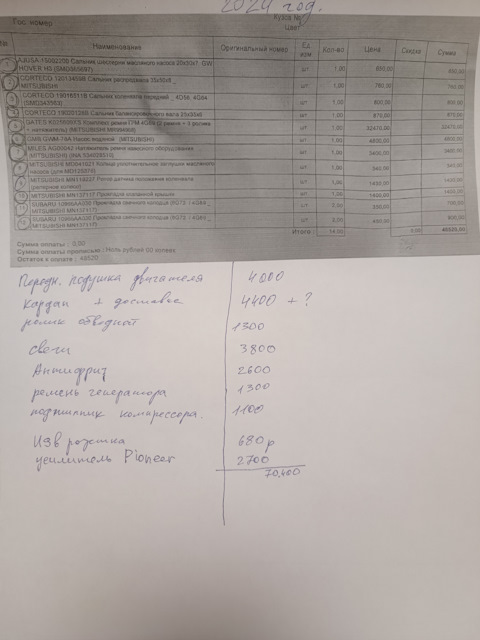 2024 год.
Гос. номер
Кузов №
Цвет
№ Наименование Оригинальный номер Ед. изм Кол-во Цена Скидка Сумма
1 AJUSA 15002200 Сальник шестерни масляного насоса GW HOVER H3 шт 1,00 850,00 850,00
2 CORTECO Сальник распредвала 35x50x8 _ MITSUBISHI шт 1,00 760,00 760,00
3 CORTECO Сальник коленвала передний _ 4D56, 4G64 шт 1,00 800,00 800,00
4 CORTECO Сальник балансировочного вала шт 1,00 870,00 870,00
5 GATES Комплект ремня ГРМ 4G64 (2 ремня + 3 ролика + натяжитель) (MITSUBISHI шт 1,00 32470,00 32470,00
6 GMB GWM-78A Насос водяной (MITSUBISHI) шт 1,00 4800,00 4800,00
7 MILES AG00042 Натяжитель ремня навесного оборудования (MITSUBISHI) шт 1,00 3400,00 3400,00
8 MITSUBISHI Кольцо уплотнительное заглушки масляного насоса шт 1,00 340,00 340,00
9 MITSUBISHI Датчик положения коленвала шт 1,00 1430,00 1430,00
10 MITSUBISHI MN137117 Прокладка клапанной крышки шт 1,00 1400,00 1400,00
11 SUBARU Прокладка свечного колодца (6G72 ; 4G69 _ MITSUBISHI MN137117) шт 2,00 350,00 700,00
12 SUBARU Прокладка свечного колодца (6G72 ; 4G69 _ MITSUBISHI MN137117) шт 2,00 450,00 900,00
Итого 14,00 0,00
Сумма оплаты : 0,00
Сумма оплаты прописью : Ноль рублей 00 копеек
Остаток к оплате :
Передн. подушка двигателя 4000
Кардан + доставка 4400 + ?
ролик обводной 1300
свечи 3800
Антифриз 2600
ремень генератора 1300
подшипник компрессора. 1100
680р
усилитель Pioneer 2700
70,400